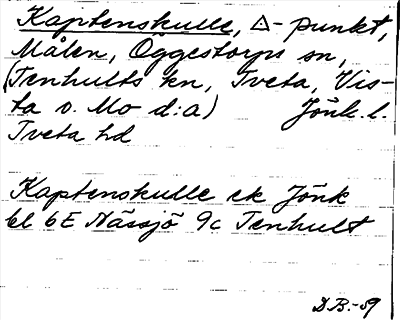 Kaptenskulle, △-punkt,
Målen, Öggestorps sn,
(Tenhults kn, Tveta, Vis-
ta o. Mo d:a) Jönk. l.
Tveta hd
Kaptenskulle ek Jönk
bl 6E Nässjö 9c Tenhult
D.B.-59